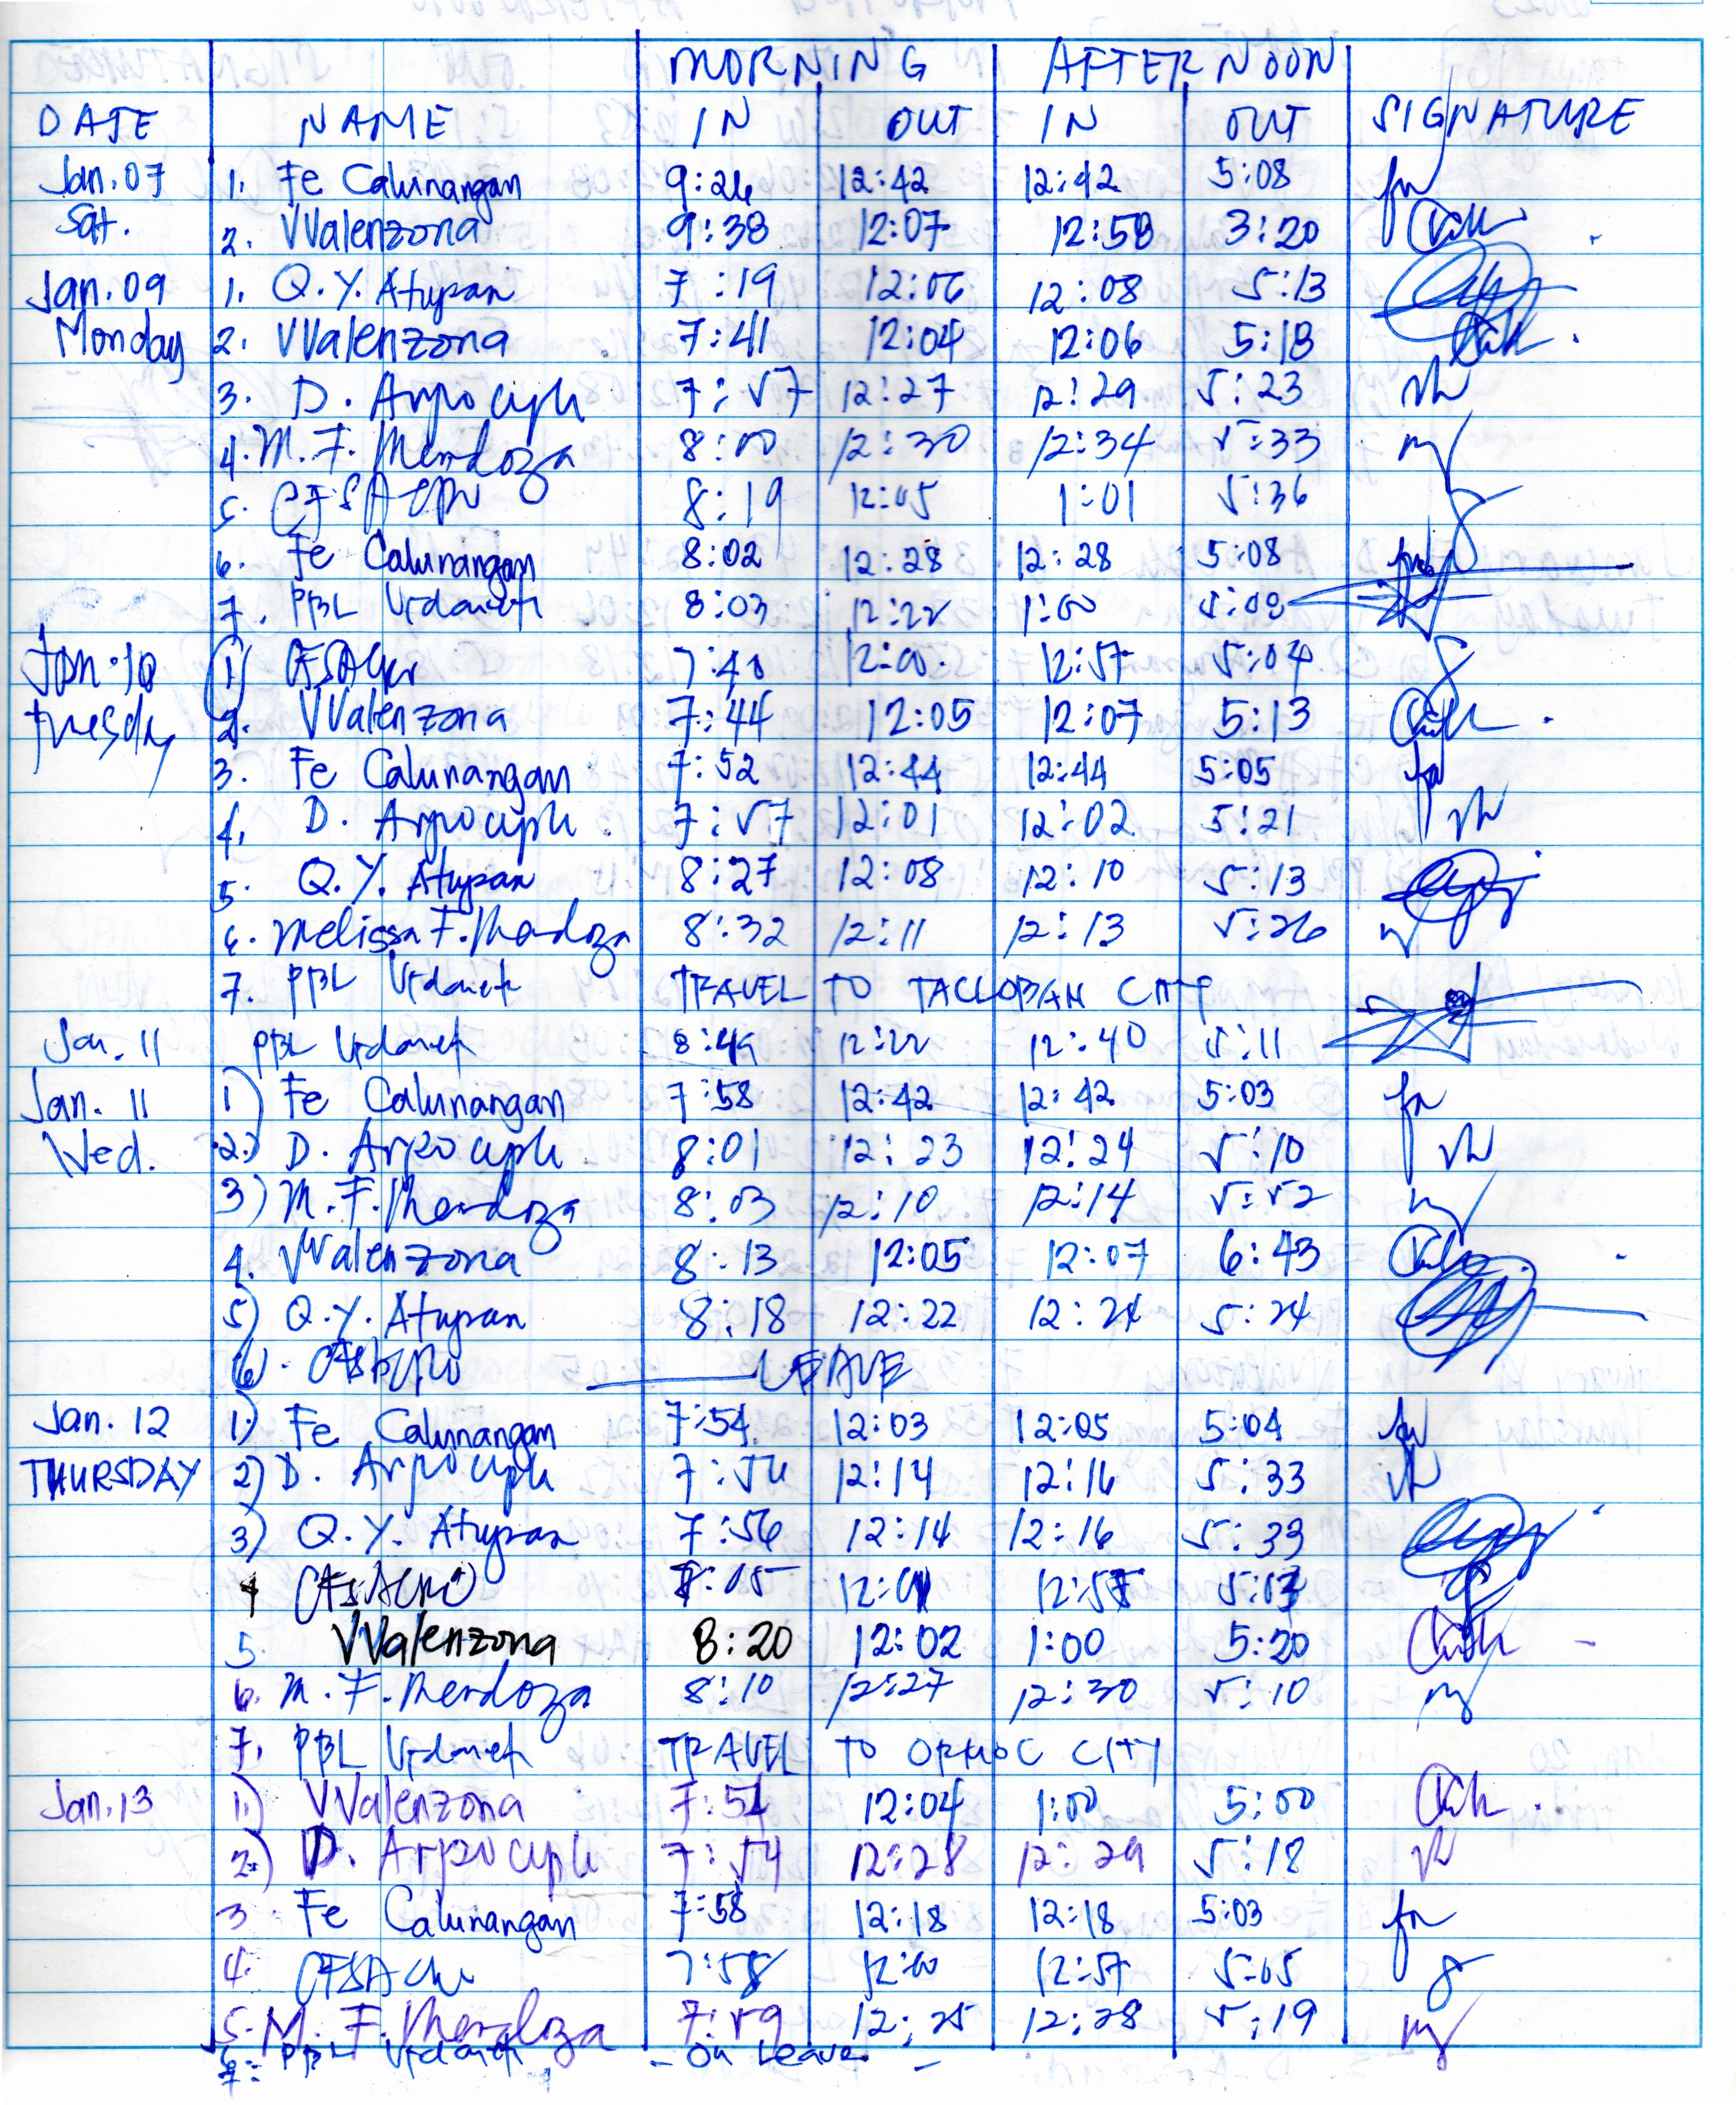 MORNING AFTERNOON
DATE NAME IN OUT IN OUT SIGNATURE
Jan. 07 1. Fe Calunangan 9:26 12:42 12:42 5:08
Sat. 2. VValenzona 9:38 12:07 12:58 3:20
Jan. 09 1. Q.Y. Atupan 7:19 12:06 12:08 5:13
Monday 2. VValenzona 7:41 12:04 12:06 5:18
3. D. 7:57 12:27 12:29 5:23
4. M. F. Mendoza 8:00 12:30 12:34 5:33
5. 8:19 12:05 1:01 5:36
6. Fe Calunangan 8:02 12:28 12:28 5:08
7. PBL 8:03 12:22 1:00 5:08
Jan. 10 1) 7:40 12:00 12:57 5:04
Tuesday 2. VValenzona 7:44 12:05 12:07 5:13
3. Fe Calunangan 7:52 12:44 12:44 5:05
4. D. 7:57 12:01 12:02 5:21
5. Q.Y. Atupan 8:27 12:08 12:10 5:13
6. Melissa F. Mendoza 8:32 12:11 12:13 5:26
7. PBL TRAVEL TO TACLOBAN CITY
Jan. 11 PBL 8:49 12:22 12:40 5:11
Jan. 11 1) Fe Calunangan 7:58 12:42 12:42 5:03
Wed. 2.) D. 8:01 12:23 12:24 5:10
3) M. F. Mendoza 8:03 12:10 12:14 5:52
4. VValenzona 8:13 12:05 12:07 6:43
5) Q.Y. Atupan 8:18 12:22 12:24 5:24
6. LEAVE
Jan. 12 1.) Fe Calunangan 7:54 12:03 12:05 5:04
THURSDAY 2) D. 12:14 12:16 5:33
3) Q.Y. Atupan 7:56 12:14 12:16 5:33
4 12:57
5. VValenzona 8:20 12:02 1:00 5:20
6. M. F. Mendoza 8:10 12:27 12:30 5:10
7. PBL TRAVEL TO ORMOC CITY
Jan. 13 1.) VValenzona 7:54 12:04 1:00 5:00
2.) D. 7:54 12:28 12:29 5:18
3. Fe Calunangan 7:58 12:18 12:18 5:03
4. 7:58 12:00 12:57 5:05
5. M. F. Mendoza 7:59 12:25 12:28 5:19
PBL - On Leave -